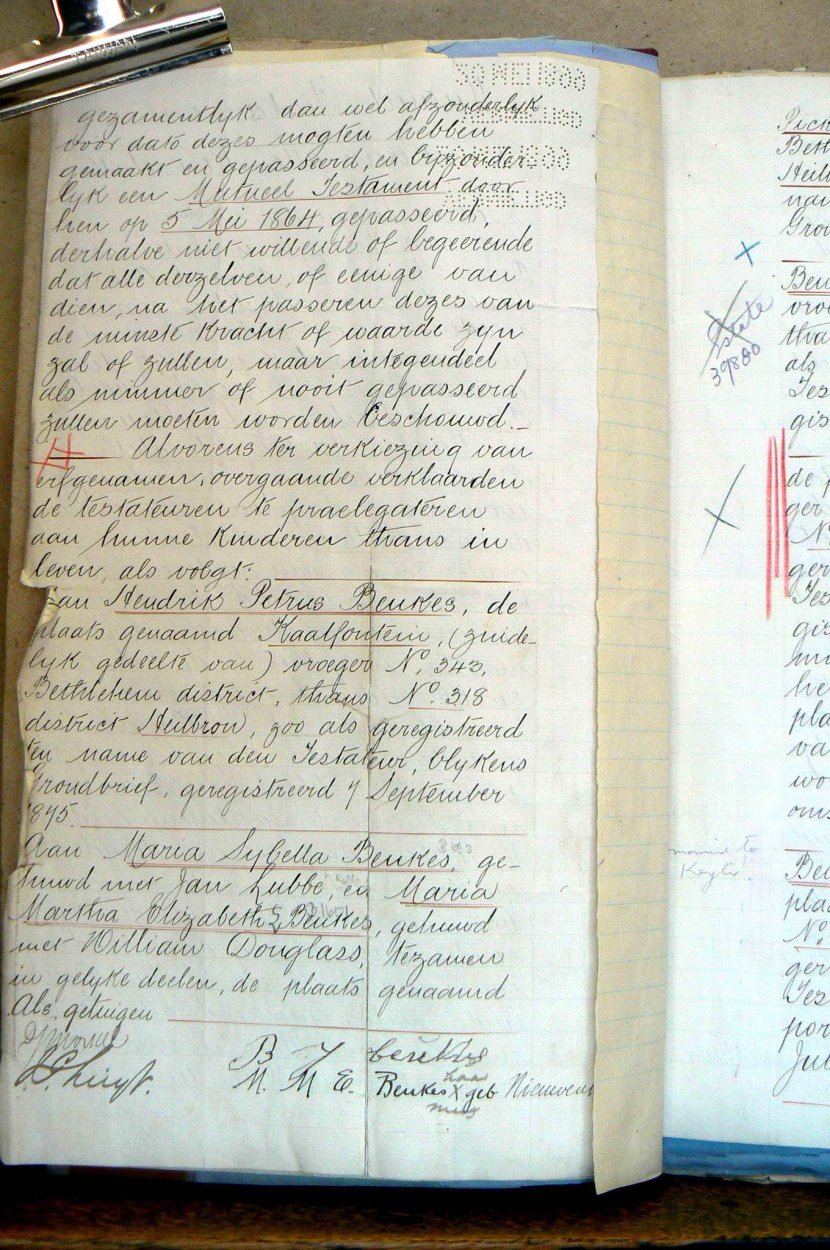 TAIWAN
gezamentlyk dan wel afzonderlyk
voor dato dezes mogten hebben
gemaakt en gepasseerd, en byzonder-
lyk een Mutueel Testament door
hen op 5 Mei 1864, gepasseerd,
derhalve niet willende of begeerende
dat alle derzelven, of eenige van
dien, na het passeren dezes van
de minste kracht of waarde zyn
zal of zullen, maar integendeel
als nimmer of nooit gepasseerd
zullen moeten worden beschouwd.
Alvorens ter verkiezing van
erfgenamen overgaande verklaarden
de testateuren te praelegateren
aan hunne kinderen thans in
leven, als volgt:
Aan Hendrik Petrus Beukes, de
plaats genaamd Kaalfontein, (zuide-
lyk gedeelte van) vroeger No. 343,
Bethlehem district, thans No. 318
district Heilbron, zoo als geregistreerd
ten name van den Testateur, blykens
Grondbrief, geregistreerd 7 September
1875.
Aan Maria Sybella Beukes, ge-
huwd met Jan Lubbe, en Maria
Martha Elizabeth S Beukes, gehuwd
met William Douglass, tezamen
in gelyke deelen, de plaats genaamd
Als getuigen
B J
M. M E. Beukes haar X geb
merk
Estate
39800